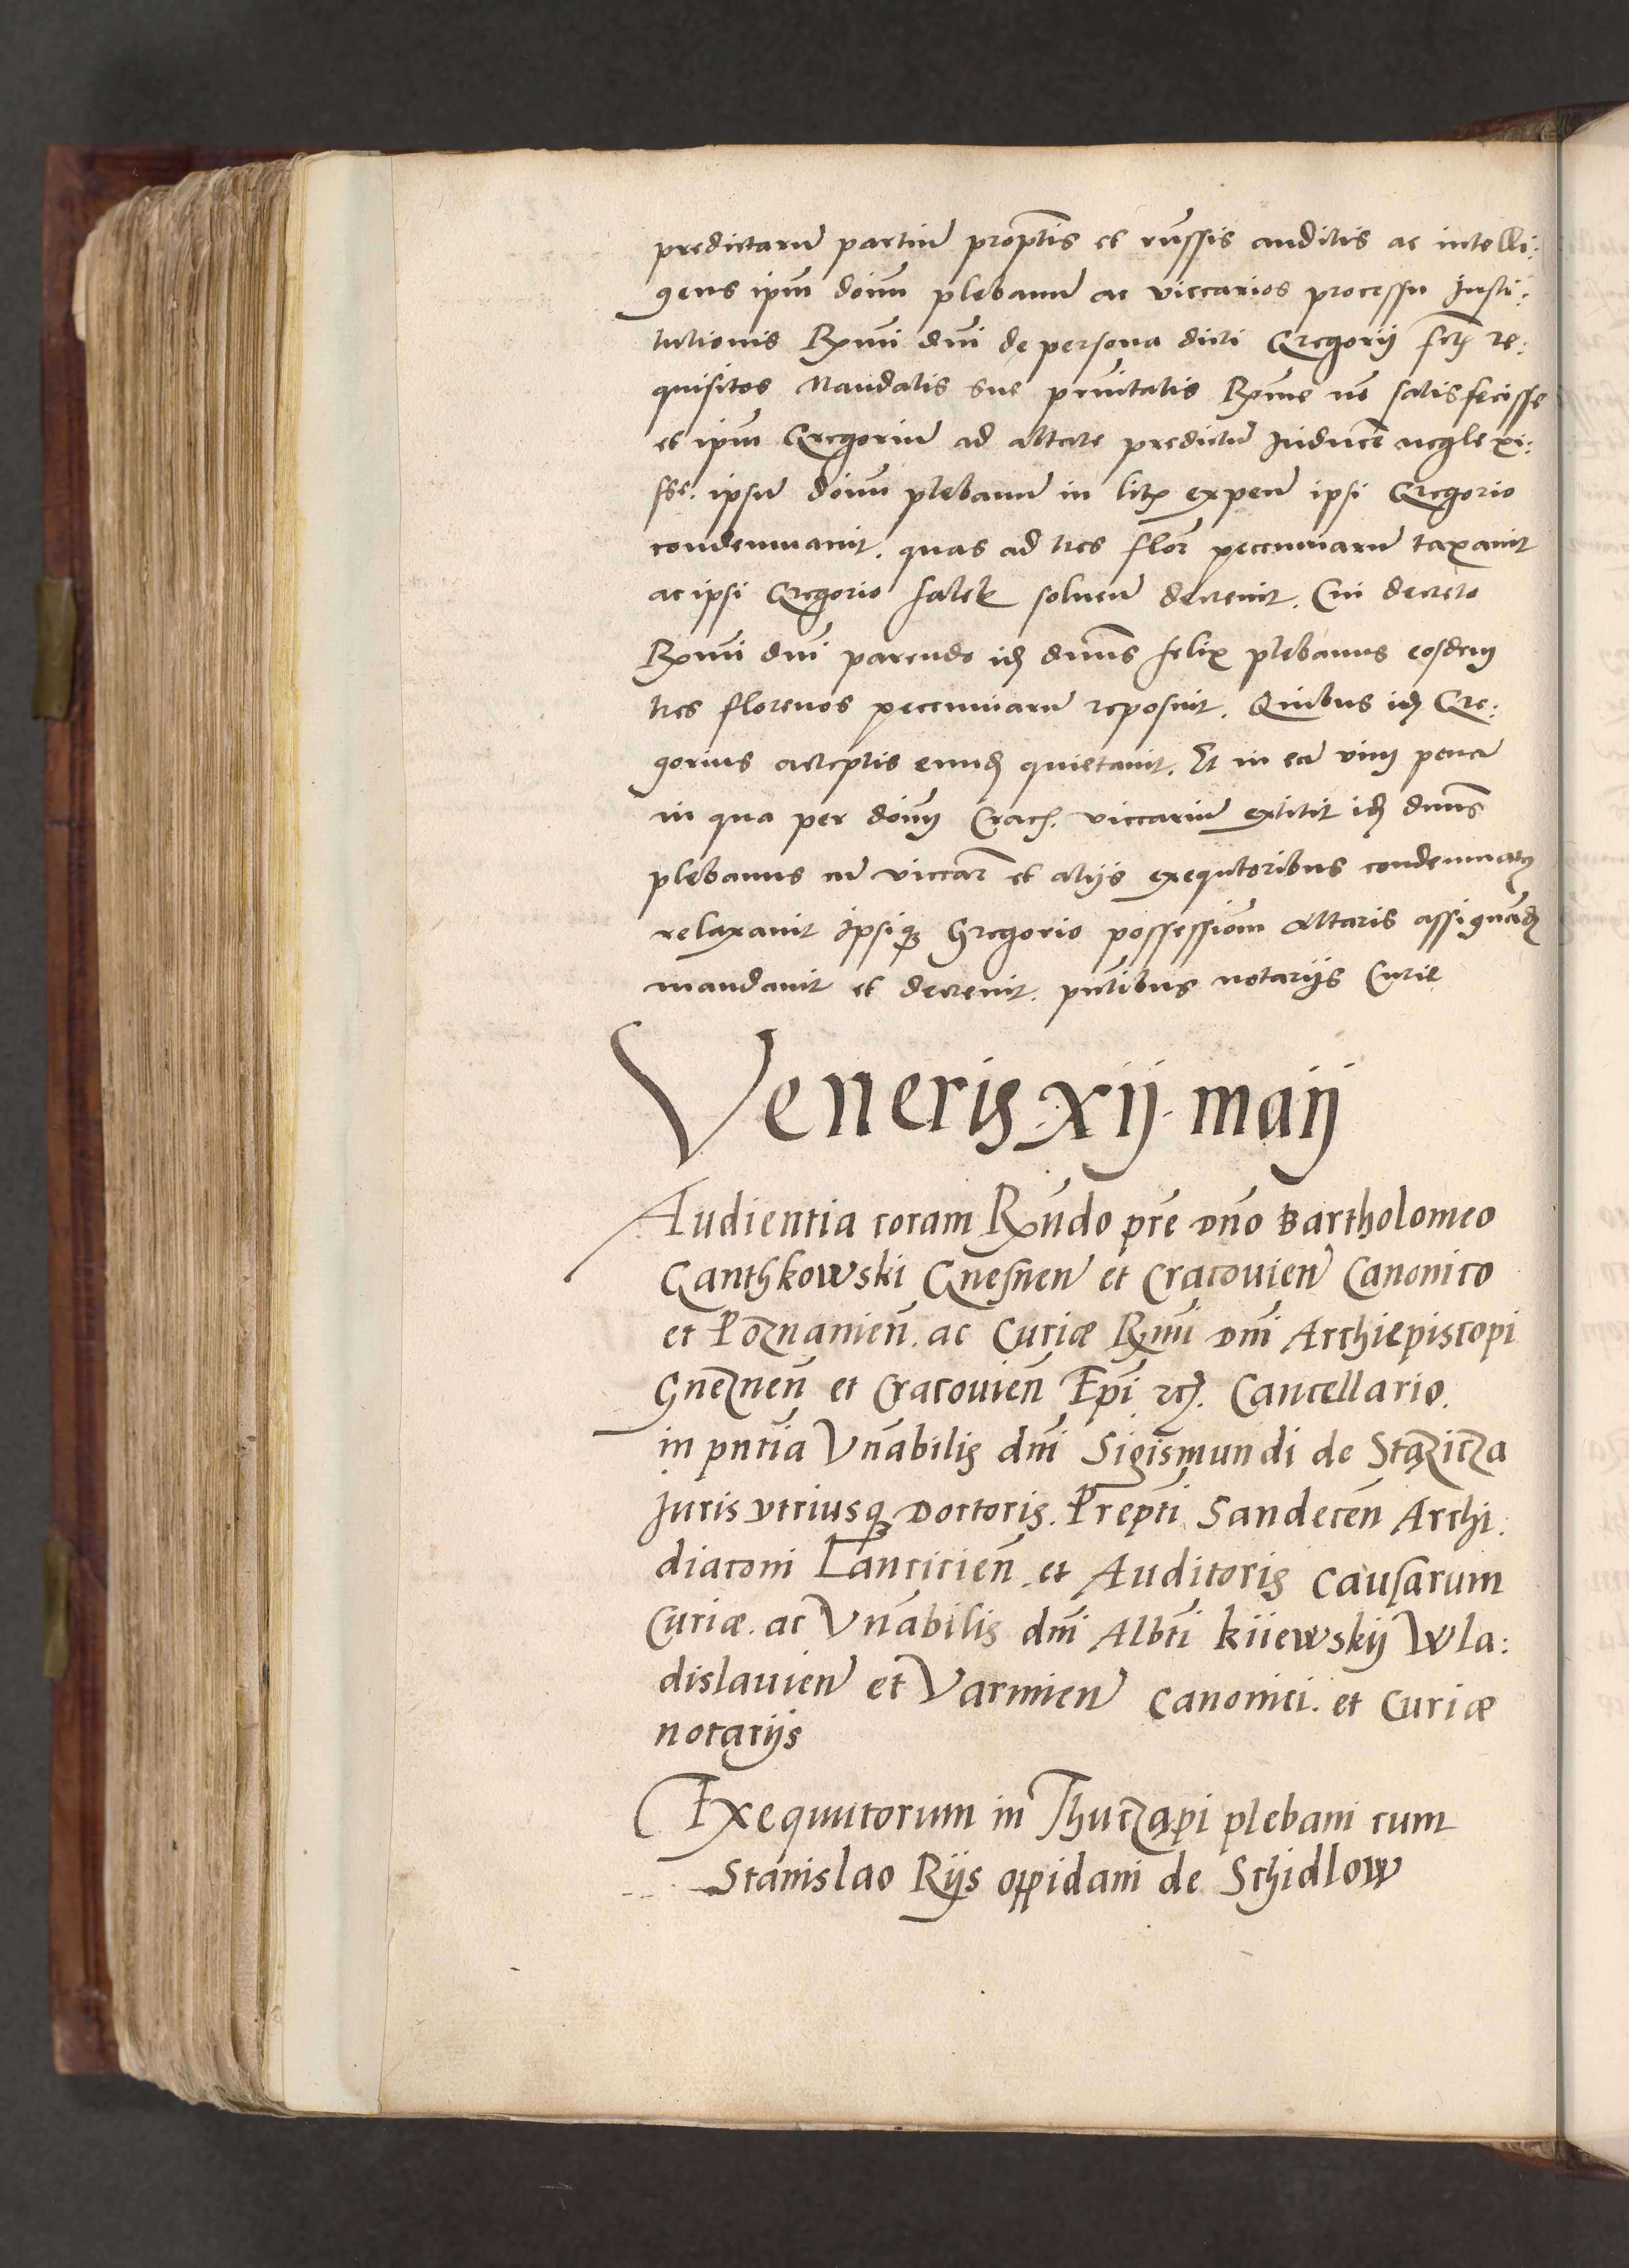 predictarum partium proptis et russis auditis ac intelli:
gens ipm dom̃ plebanum ac viccarios processu Insti:
tutionis Rxmi dni de persona dicti Gregorij re:
quisitos Mandatis sue Rxme nõ satisfecisse
et ipm Gregorium ad altare predictũ Inducere neglexi:
sse. ipsum dom̃ plebanum in litis expen ipsi Gregorio
condemnauit. quas ad tres flor̃ pecuniarum taxauit
ac ipsi Gregorio falek soluen decreuit. Cui decreto
Rxmi dni parendo idẽ dnus felix plebanus eosdem
tres florenos pecuniarum reposuit. Quibus idẽ Gre:
gorius acceptis eundẽ quietauit. Et in ea vim pena
in qua per dom̃ Crach. viccarium extitit idẽ dnus
plebanus cum viccar̃ et alijs exequtoribus condemnatus
relaxauit Ipsiqʒ Gregorio possessiom Altaris assignandã
mandauit et decreuit. pñtibus notarijs Curie
Veneris xij maij
Audientia coram Rxũdo prẽ Dño Bartholomeo
Ganthkowski Gnesnen et Cracouien Canonico
et Poznanieñ. ac Curiæ Rxmi Dñi Archiepiscopi
Gnezneñ et Cracouieñ Epĩ etc. Cancellario.
in pntĩa Vñabilis dñi Sigismundi de Stązicza
Juris vtriusqʒ Doctoris. Prepti Sandeceñ Archi.
diaconi Lancicieñ. et Auditoris causarum
Curiæ. ac Vñabilis dñi Albti kiiewskij Wla:
dislauien et Varmien Canonici. et Curiæ
notarijs
Exequutorum in Thurząpi plebani cum
Stanislao Rijs oppidani de Schidlow